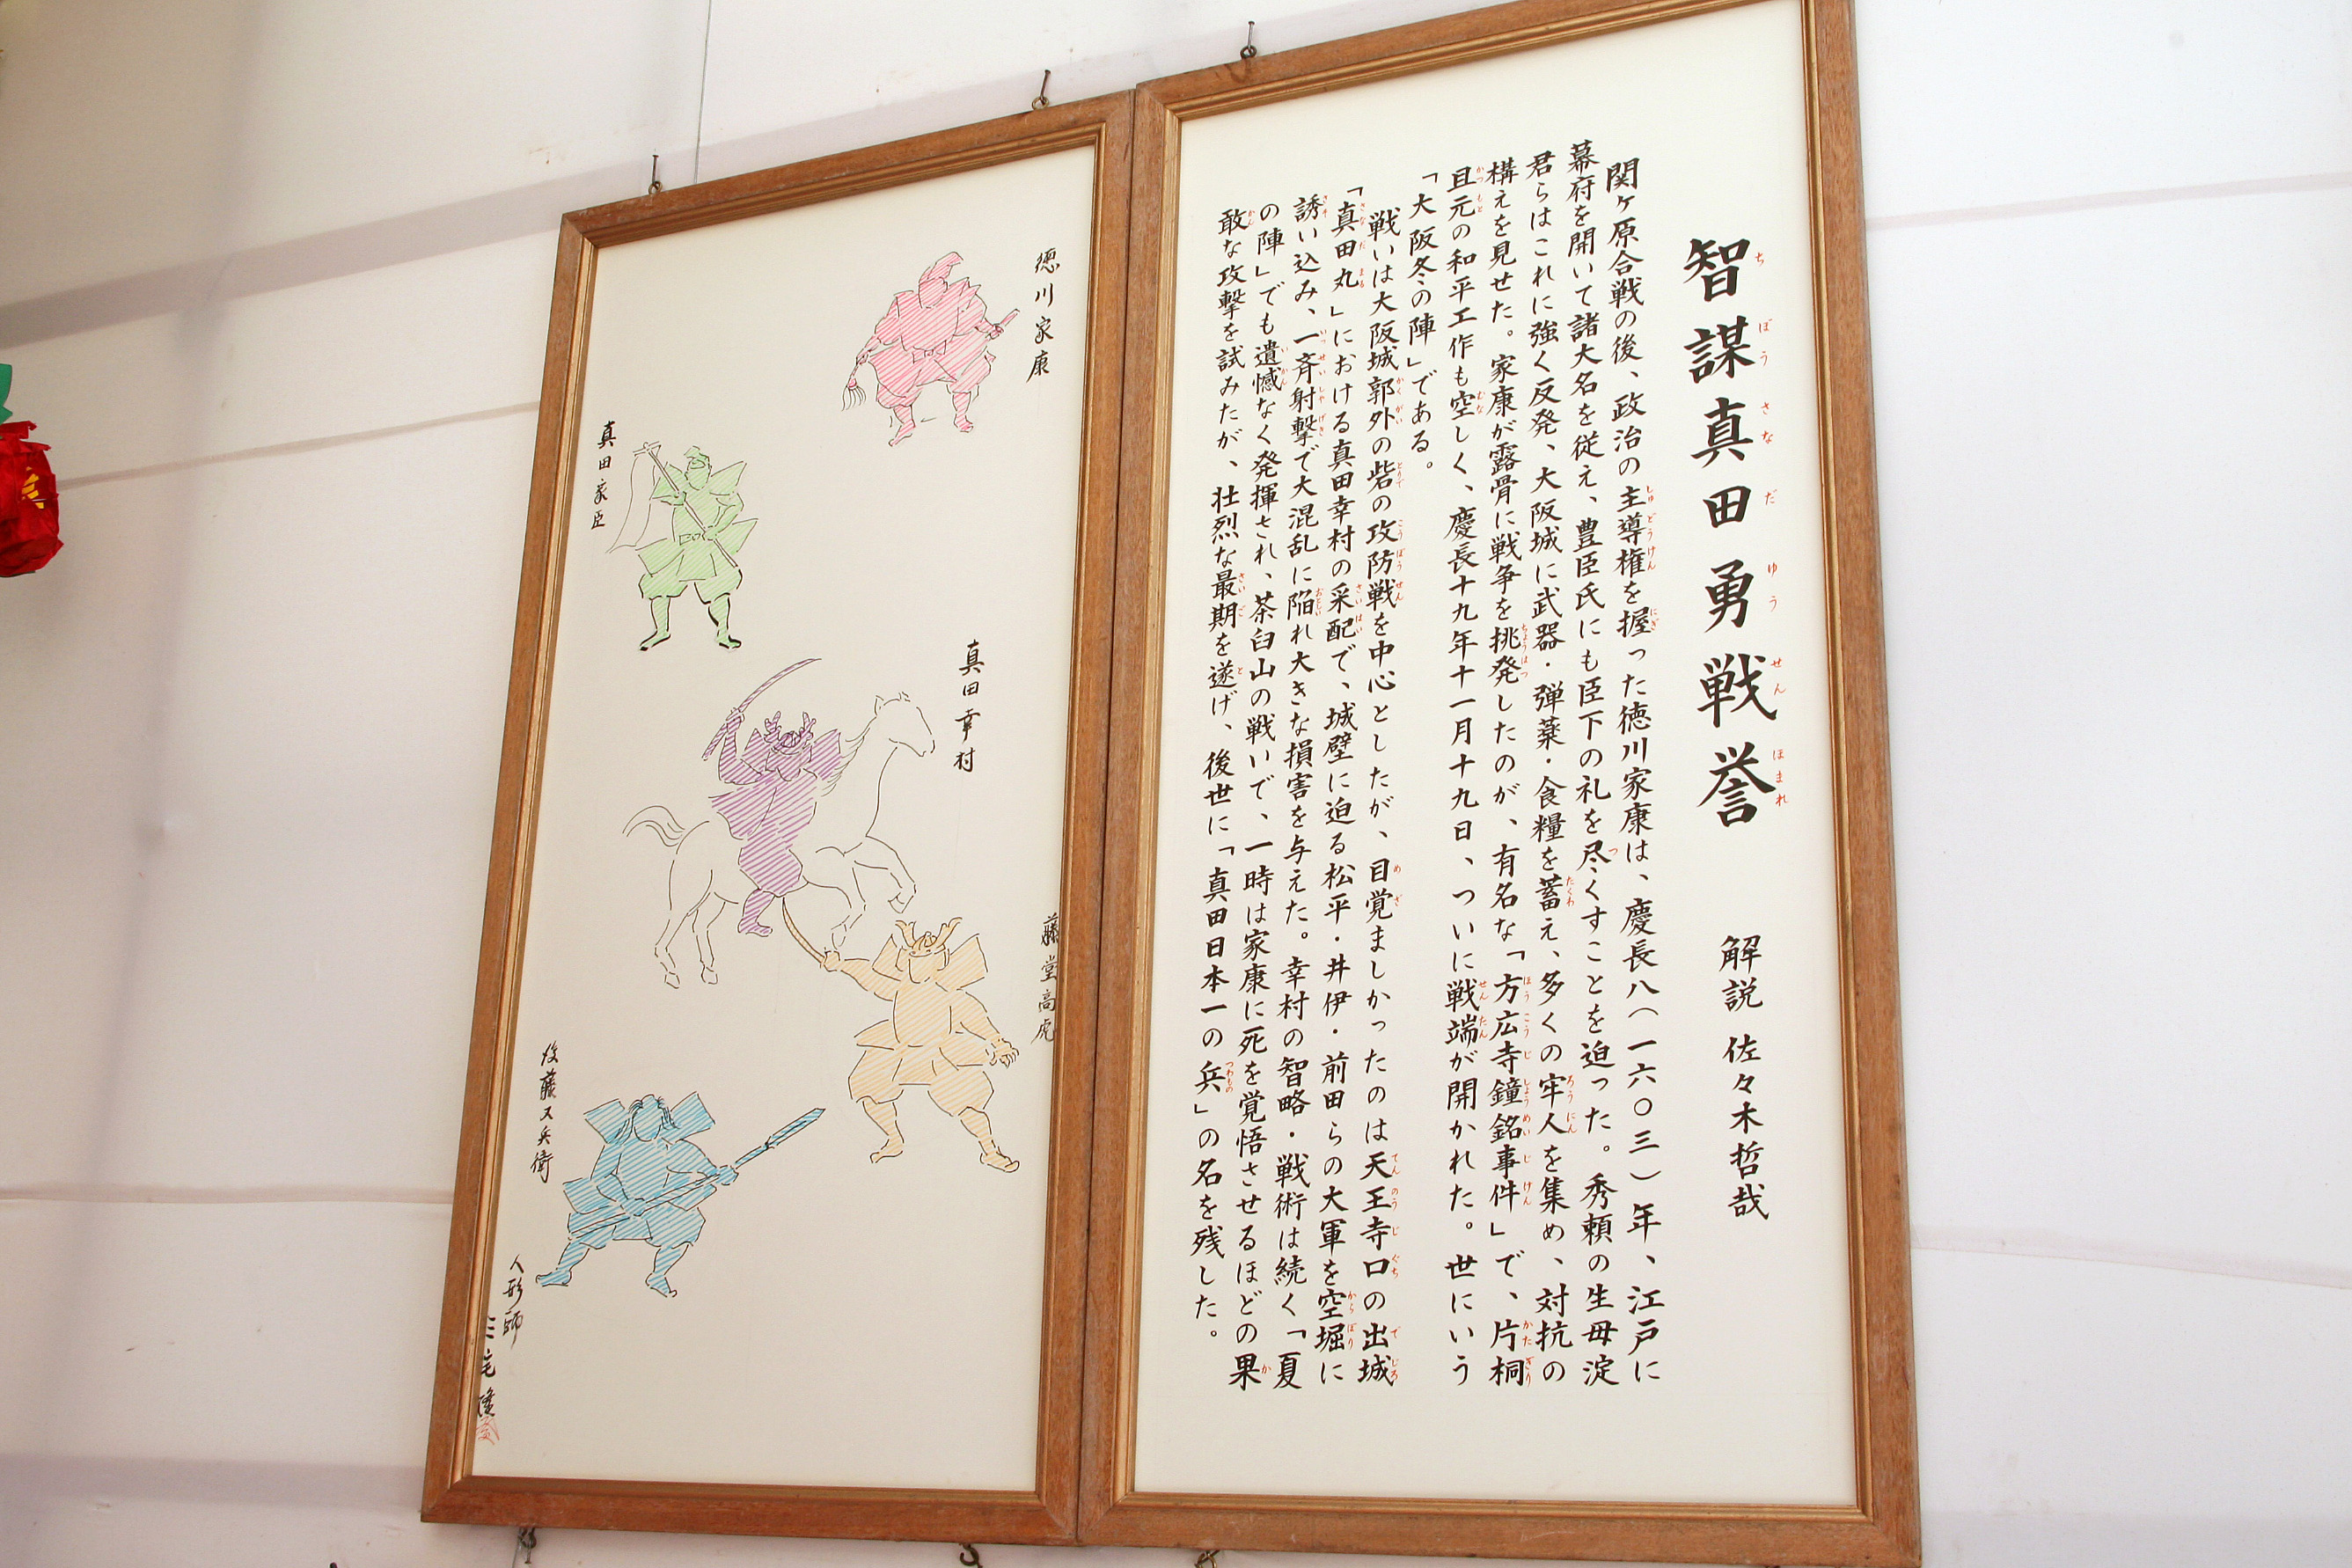 智謀真田勇戦誉　解説 佐々木哲哉
関ヶ原合戦の後、政治の主導権を握った徳川家康は、慶長八(一六〇三)年、江戸に
幕府を開いて諸大名を従え、豊臣氏にも臣下の礼を尽くすことを迫った。秀頼の生母淀
君らはこれに強く反発、大阪城に武器・弾薬・食糧を蓄え、多くの牢人を集め、対抗の
構えを見せた。家康が露骨に戦争を挑発したのが、有名な「方広寺鐘銘事件」で、片桐
且元の和平工作も空しく、慶長十九年十一月十九日、ついに戦端が開かれた。世にいう
「大阪冬の陣」である。
戦いは大阪城郭外の砦の攻防戦を中心としたが、目覚ましかったのは天王寺口の出城
「真田丸」における真田幸村の采配で、城壁に迫る松平・井伊・前田らの大軍を空堀に
誘い込み、一斉射撃で大混乱に陥れ大きな損害を与えた。幸村の智略・戦術は続く「夏
の陣」でも遺憾なく発揮され、茶臼山の戦いで、一時は家康に死を覚悟させるほどの果
敢な攻撃を試みたが、壮烈な最期を遂げ、後世に「真田日本一の兵」の名を残した。
徳川家康
真田家臣
真田幸村
藤堂高虎
後藤又兵衛
人形師